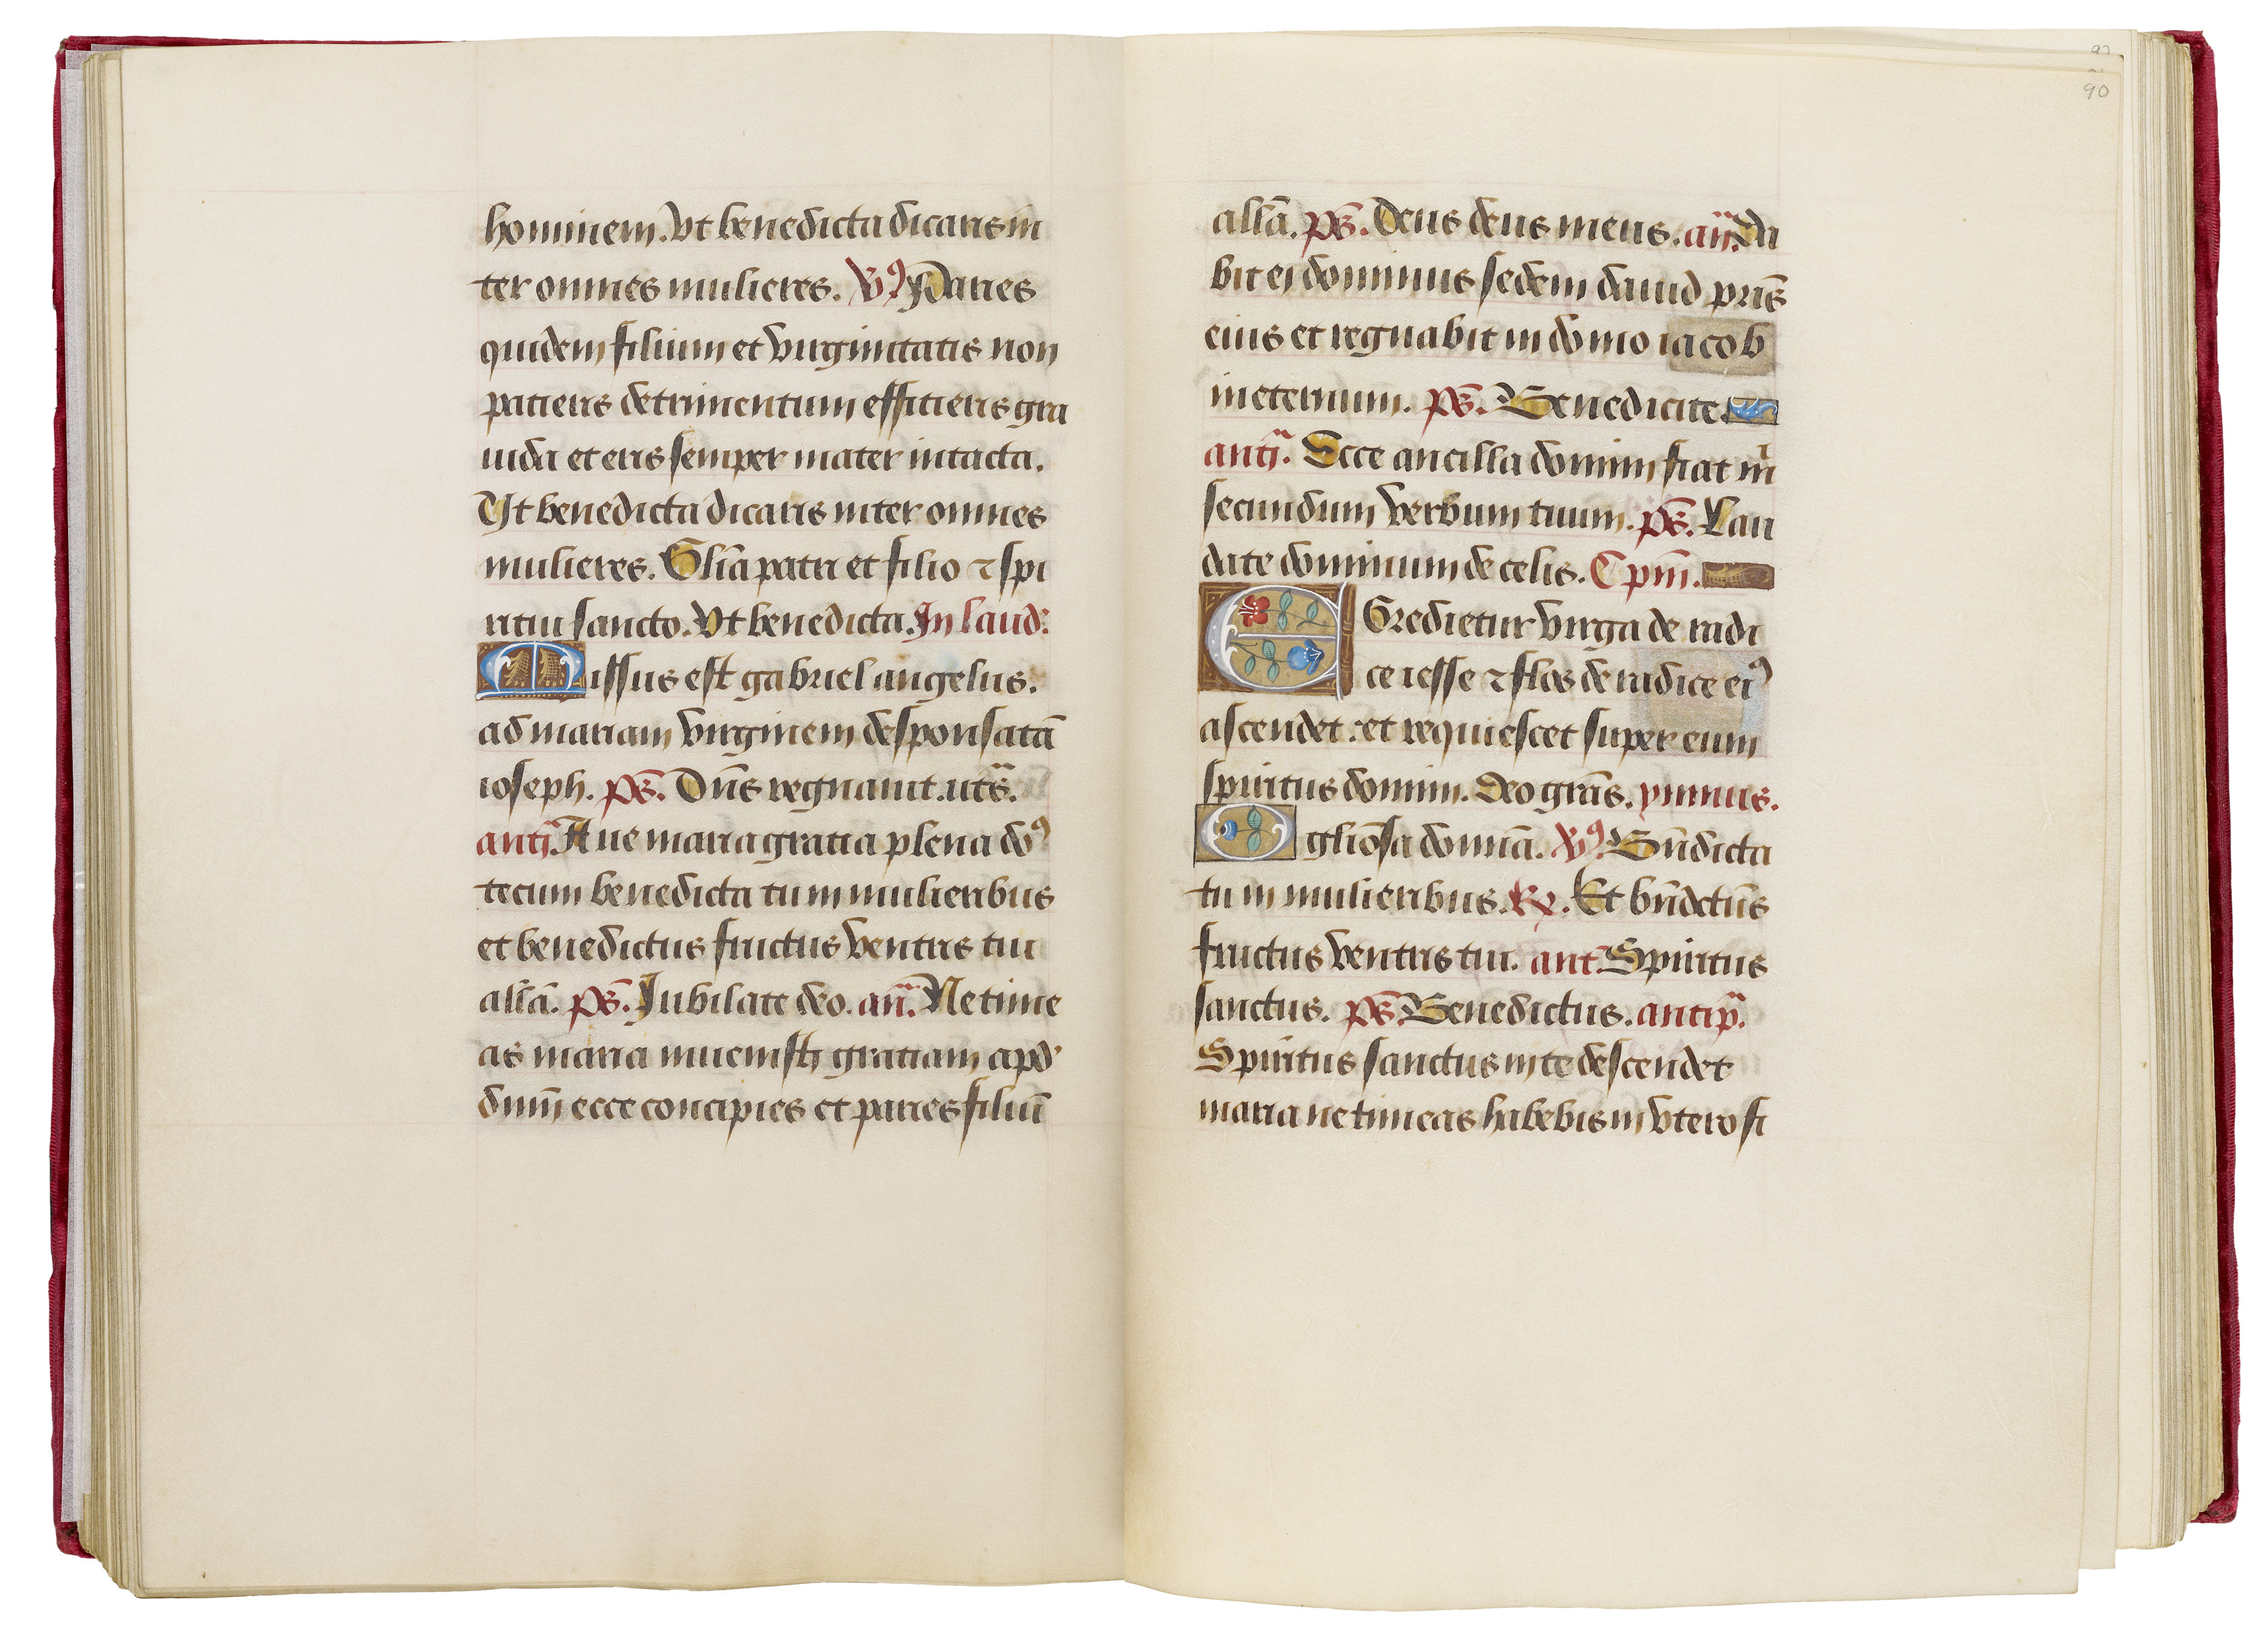 hominem. Vt benedicta dicaris in
ter omnes mulieres. V9. Paries
quidem filium et virginitatis non
patieris detrimentum efficieris gra
uida et eris semper mater intacta.
Vt benedicta dicaris inter omnes
mulieres. Gl̄ia patri et filio ⁊ spi
ritui sancto. Vt benedicta. In laud:
Missus est gabriel angelus.
ad mariam virginem desponsatā
ioseph. ps̄. Dn̄s regnauit. ut s̄.
antī. Aue maria gratia plena do9
tecum benedicta tu in mulieribus
et benedictus fructus ventris tui
all̄a. ps̄. Jubilate deo. an̄. Ne time
as maria inuenisti gratiam apd'
dnm̄ ecce concipies et paries filiū
90
all̄a. ps̄. Deus deus meus. an̄. Da
bit ei dominus sedem dauid pris̄
eius et regnabit in domo iacob
in eternum. ps̄. Benedicite.
antī. Ecce ancilla domini fiat m̄
secundum verbum tuum. ps̄. Lau
date dominum de celis. Cpm̄.
EGredietur virga de radi
ce iesse ⁊ flos de radice ei9
ascendet: et requiescet super eum
spiritus domini. Deo grās. ymnus.
O gliōsa domnā. V9. Bn̄dicta
tu in mulieribus. R. Et bn̄dctus
fructus ventris tui. ant. Spiritus
sanctus. ps̄. Benedictus. antip̄.
Spiritus sanctus in te descendet
maria ne timeas habebis in vtero fi